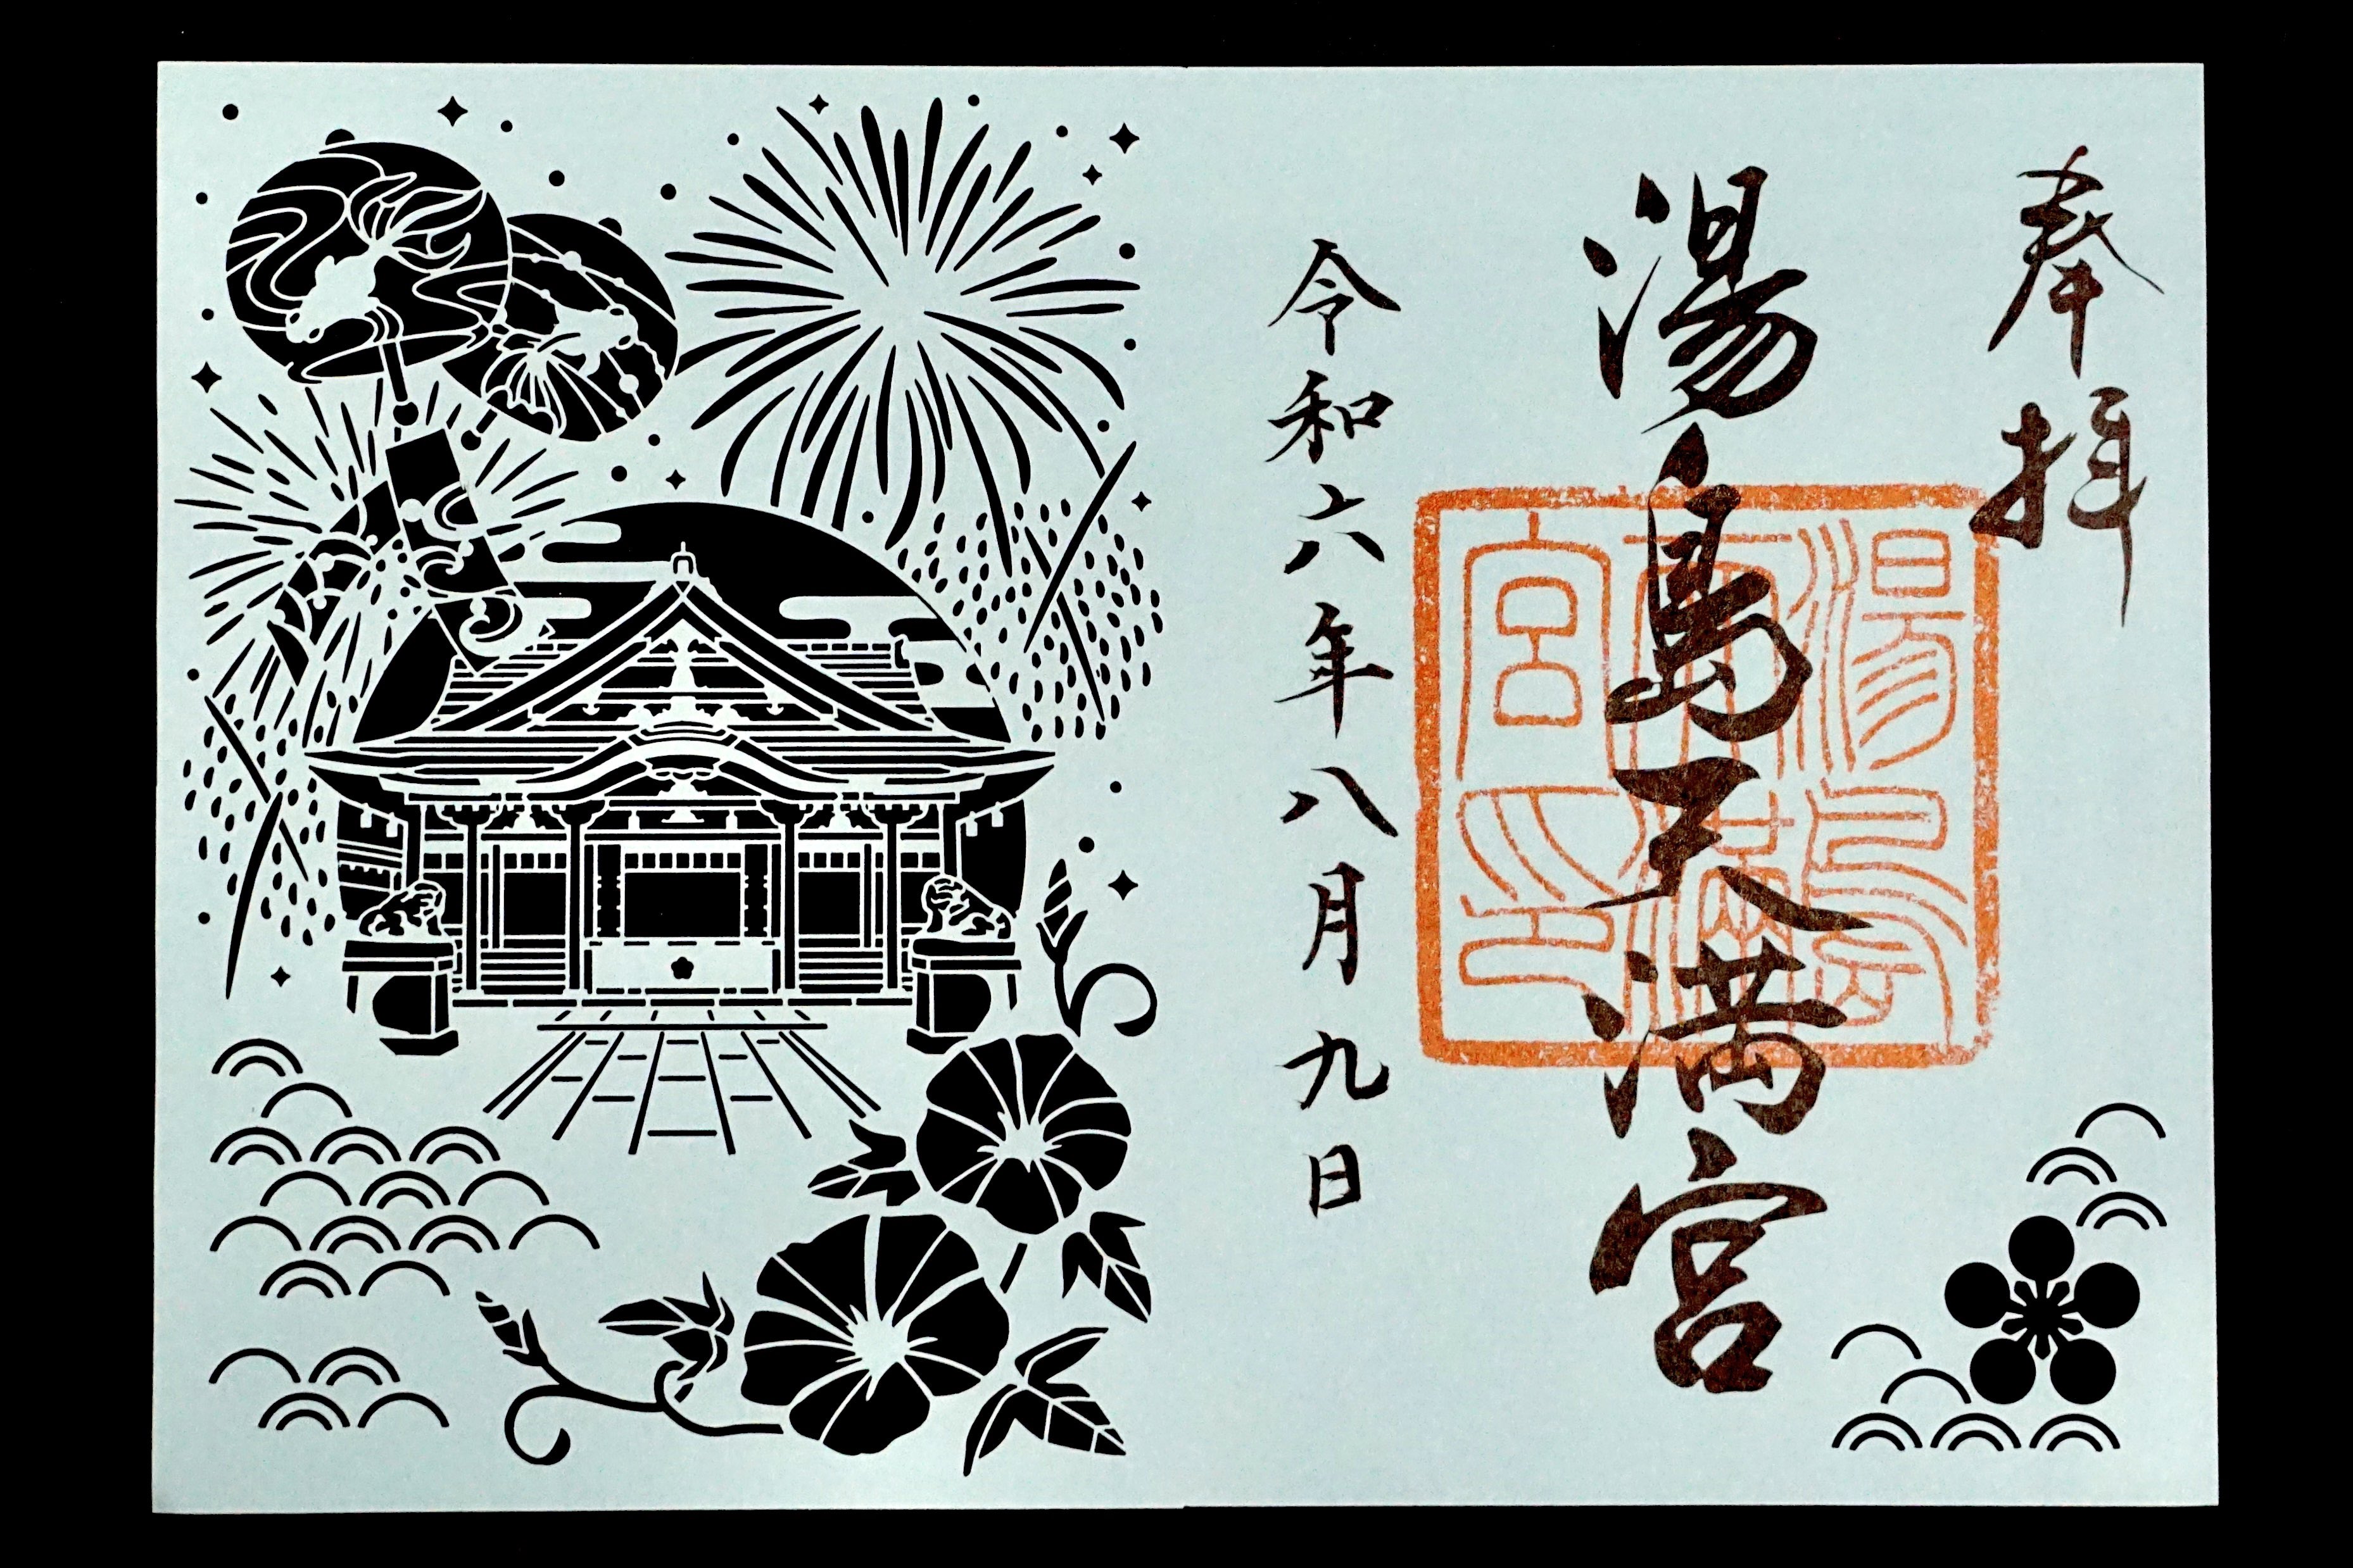 奉拝
湯島天満宮
湯島天満宮印
令和六年八月九日